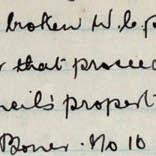 broken W.C. p
that proceed
neil's propert
Boner. No 16